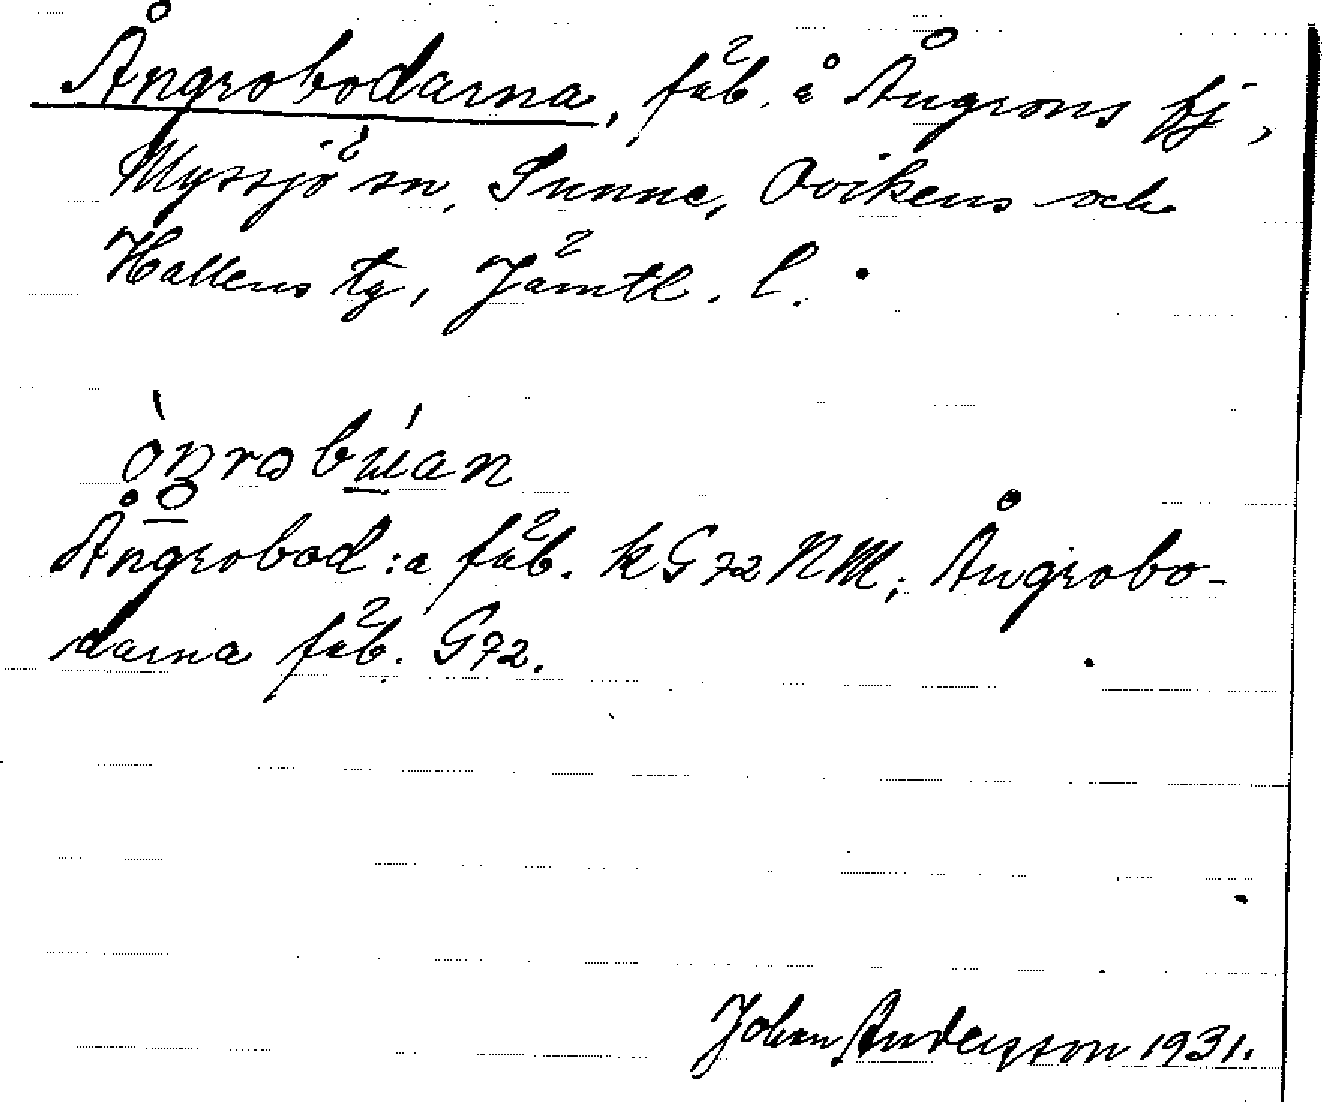 Ångrobodarna, fäb. å Ångrons fj,
Myssjö sn, Sunne, Ovikens och
Hallens tg, Jämtl. l.
òŋrobúan
Ångrobod:a fäb. kG72NM; Ångrobo-
darna fäb. G72.
Johan Andersson 1931.